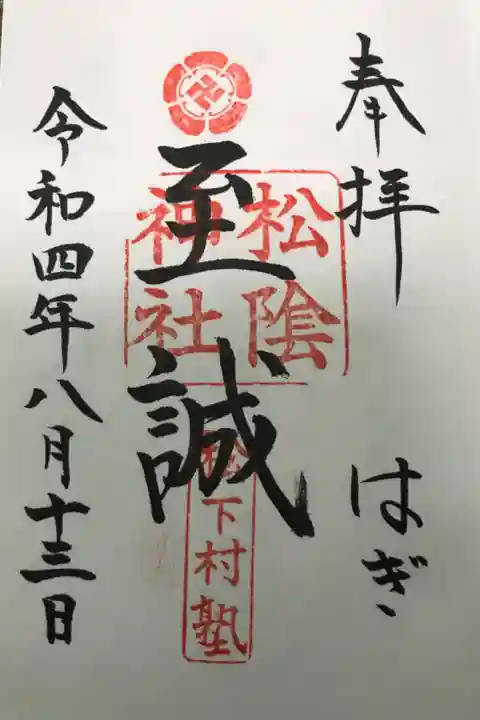 奉拝　はぎ
至誠
松陰
神社
松下村塾
令和四年八月十三日